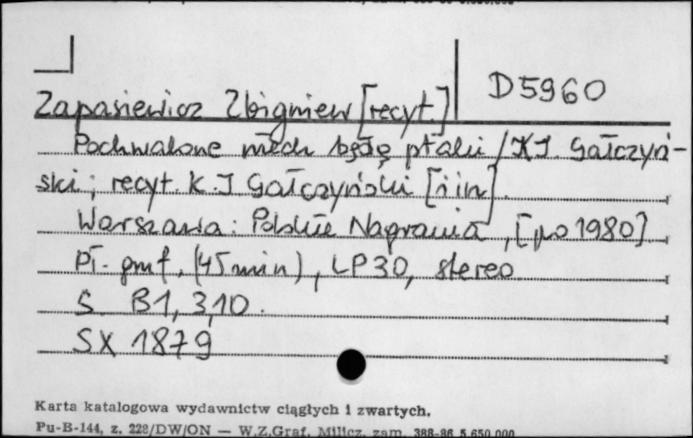 D5960
Zapasiewicz Zbigniew [recyt.]
Pochwalone niech będą ptaki / K.I. Gałczyń-
ski ; recyt. K. I Gałczyński [i in].
Warszawa : Polskie Nagrania, [po 1980]
Pł. gmf. (45 min), LP30, stereo
S. B1, 3,10.
SX 1879
Karta katalogowa wydawnictw ciągłych i zwartych.
Pu-B-144, z. 228/DW/ON — W.Z.Graf. Milicz, zam. 388-86 5.650.000